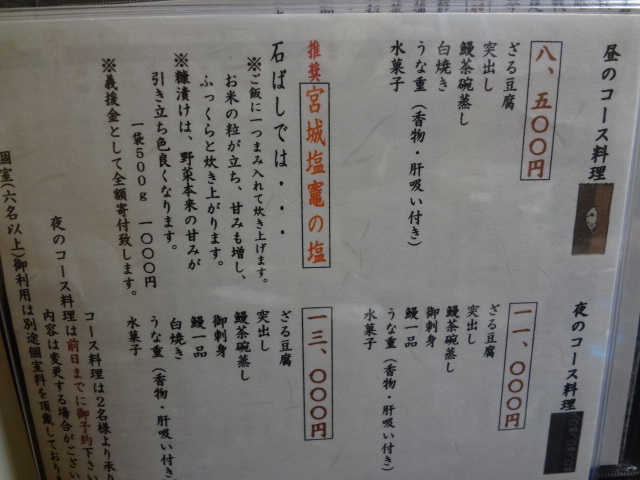 昼のコース料理
八、五〇〇円
ざる豆腐
突出し
鰻茶碗蒸し
白焼き
うな重（香物・肝吸い付き）
水菓子
推奨 宮城塩竈の塩
石ばしでは・・・
※ご飯に一つまみ入れて炊き上げます。
お米の粒が立ち、甘みも増し、
ふっくらと炊き上がります。
※糠漬けは、野菜本来の甘みが
引き立ち色良くなります。
一袋500g 一〇〇〇円
※義援金として全額寄付致します。
夜のコース料理
一一、〇〇〇円
ざる豆腐
突出し
鰻茶碗蒸し
御刺身
鰻一品
うな重（香物・肝吸い付き）
水菓子
一三、〇〇〇円
ざる豆腐
突出し
鰻茶碗蒸し
御刺身
鰻一品
白焼き
うな重（香物・肝吸い付き
水菓子
コース料理は2名様より承り
夜のコース料理は前日までに御予約下さい
内容は変更する場合がござい
個室(六名以上)御利用は別途個室料を頂戴しており